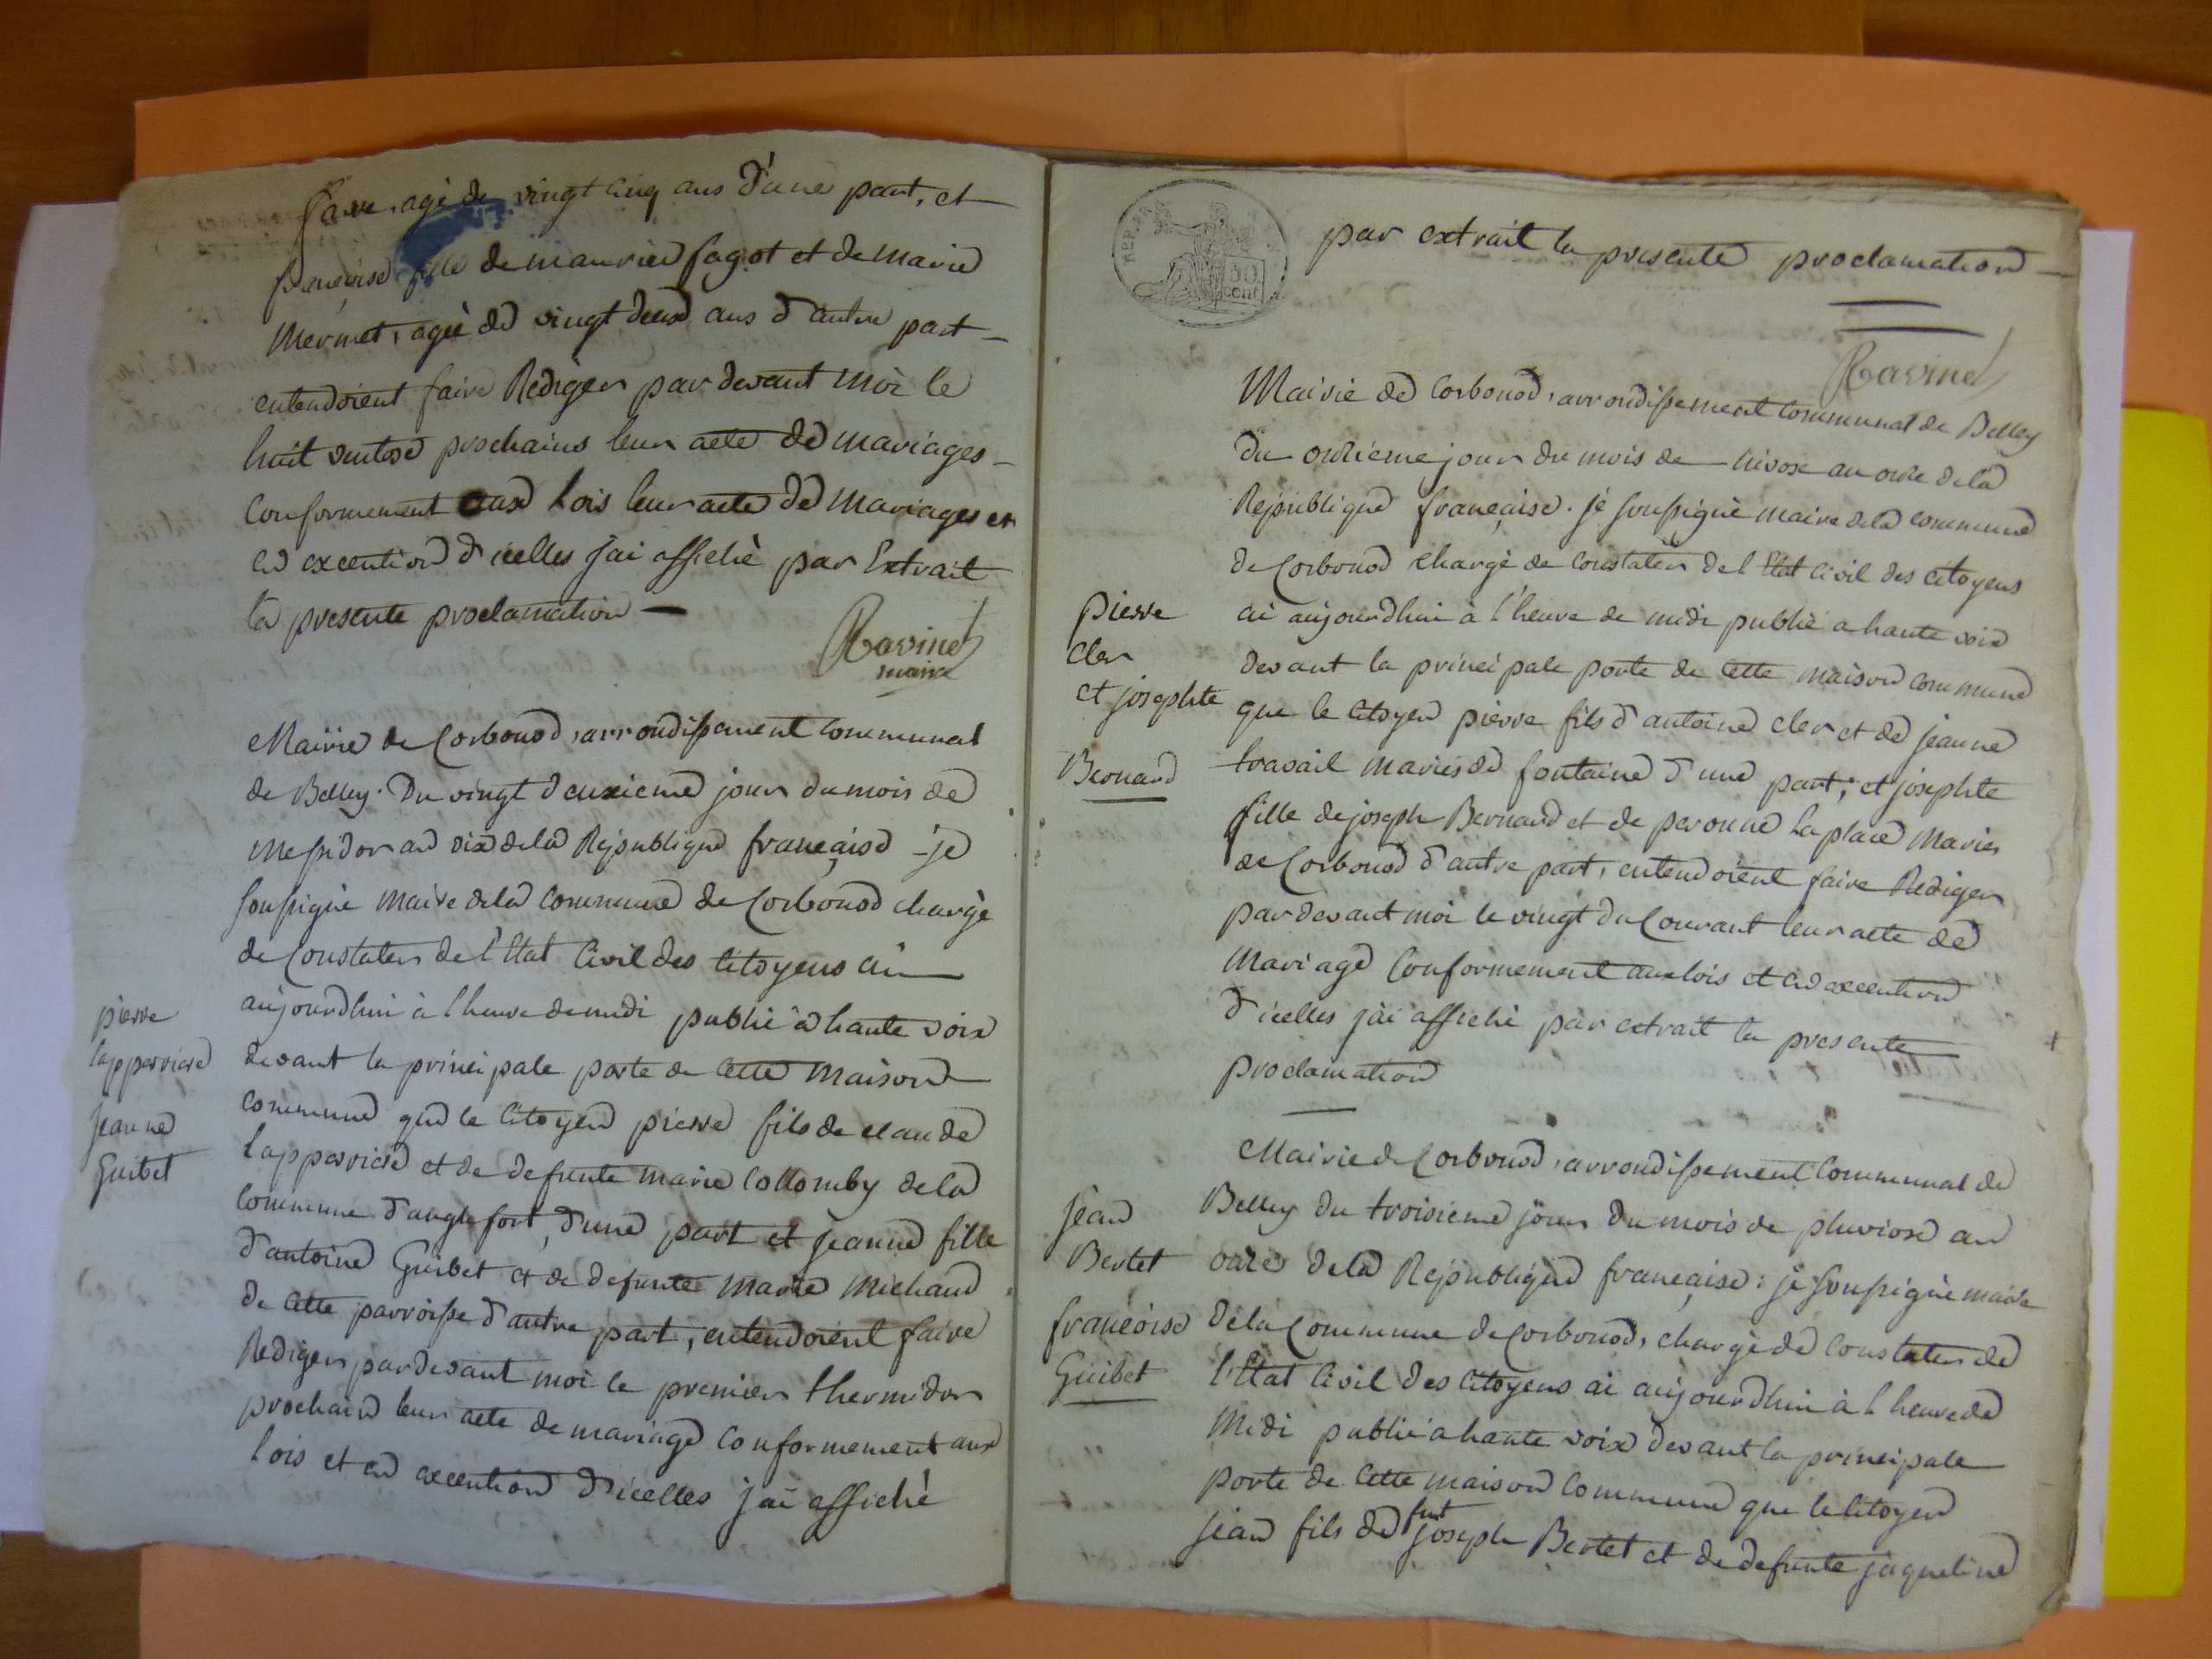 favre, agé de vingt cinq ans d'une part, et
francoise fille de maurice fagot et de marie
Mermet, agèe de vingt deux ans d'autre part –
entendoient faire Rediger par devant moi le
huit ventose prochains leur acte de mariages –
Conformement aux Lois leur acte de mariages et
en execution d'icelles j'ai affichè par Extrait
la presente proclamation –
Ravinet
maire
Mairie de Corbonod, arrondissement communal
de Belley. Du vingt deuxieme jour du mois de
messidor an dix de la Republique française – je
soussignè maire de la commune de Corbonod chargè
de Constater de l'Etat Civil des Citoyens ai
pierre
lapperriere
jeanne
Guibet
aujourdhui à l heure de midi publiè à haute voix
devant la principale porte de cette maison
commune que le Citoyen pierre fils de claude
lapperriere et de defunte marie Collomby de la
Commune d'anglefort, d'une part et jeanne fille
d'antoine Guibet et de defunte marie Michaud
de cette parroisse d'autre part, entendoient faire
Rediger pardevant moi le premier thermidor
prochain leur acte de mariage conformement aux
lois et en execution d'icelles j'ai affiché
REP. FRA
50
cent
par extrait la presente proclamation –
Ravinet
Mairie de Corbonod, arrondissement Communal de Belley
Du onzieme jour du mois de nivose an onze de la
Republique française. je soussigné maire de la commune
de Corbonod chargé de constater de l Etat Civil des citoyens
pierre
cler
et josephte
Bernard
ai aujourdhui à l'heure de midi publiè a haute voix
devant la principale porte de cette maison commune
que le Citoyen pierre fils d'antoine cler et de jeanne
travail mariés de fontaine d'une part; et josephte
fille de joseph Bernard et de peronne Laplace Maries
de Corbonod d'autre part, entendoient faire Rediger
par devant moi le vingt du Courant leur acte de
Mariage Conformement aux lois et en execution
d'icelles j'ai affiché par extrait la presente
proclamation
Mairie de Corbonod, arrondissement Communal de
jean
Bertet
francoise
Guibet
Belley du troisieme jour du mois de pluviose an
onze de la Republique française: je soussigné maire
de la Commune de Corbonod, chargé de Constater de
l'Etat Civil des Citoyens ai aujourdhui à l heure de
Midi publié a haute voix devant la principale
porte de Cette maison Commune que le Citoyen
jean fils de fut joseph Bertet et de defunte jaqueline